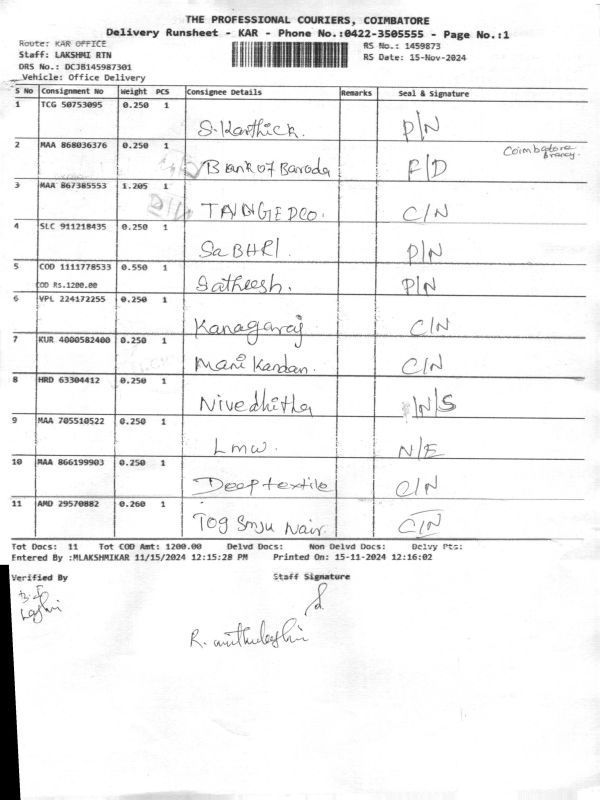 THE PROFESSIONAL COURIERS, COIMBATORE
Delivery Runsheet - KAR - Phone No.:0422-3505555 - Page No.:1
Route: KAR OFFICE RS No.: 1459873
Staff: LAKSHMI RTN RS Date: 15-Nov-2024
DRS No.: DCJB145987301
Vehicle: Office Delivery
S No Consignment No Weight PCS Consignee Details Remarks Seal & Signature
1 TCG 50753095 0.250 1 S.Karthick. P/N
2 MAA 868036376 0.250 1 Bank of Baroda F/D Coimbatore
3 MAA 867385553 1.205 1 TANGEDCO. C/N
4 SLC 911218435 0.250 1 SaBHRI. P/N
5 COD 1111778533 0.550 1 Satheesh. P/N
COD Rs.1200.00
6 VPL 224172255 0.250 1 Kanagaraj C/N
7 KUR 4000582400 0.250 1 Mani Kandan. C/N
8 HRD 63304412 0.250 1 Nivedhitha N/S
9 MAA 705510522 0.250 1 Lmw. N/E
10 MAA 866199903 0.250 1 Deep textile C/N
11 AMD 29570882 0.260 1 Nair. C/N
Tot Docs: 11 Tot COD Amt: 1200.00 Delvd Docs: Non Delvd Docs: Delvy Pts:
Entered By :MLAKSHMIKAR 11/15/2024 12:15:28 PM Printed On: 15-11-2024 12:16:02
Verified By Staff Signature